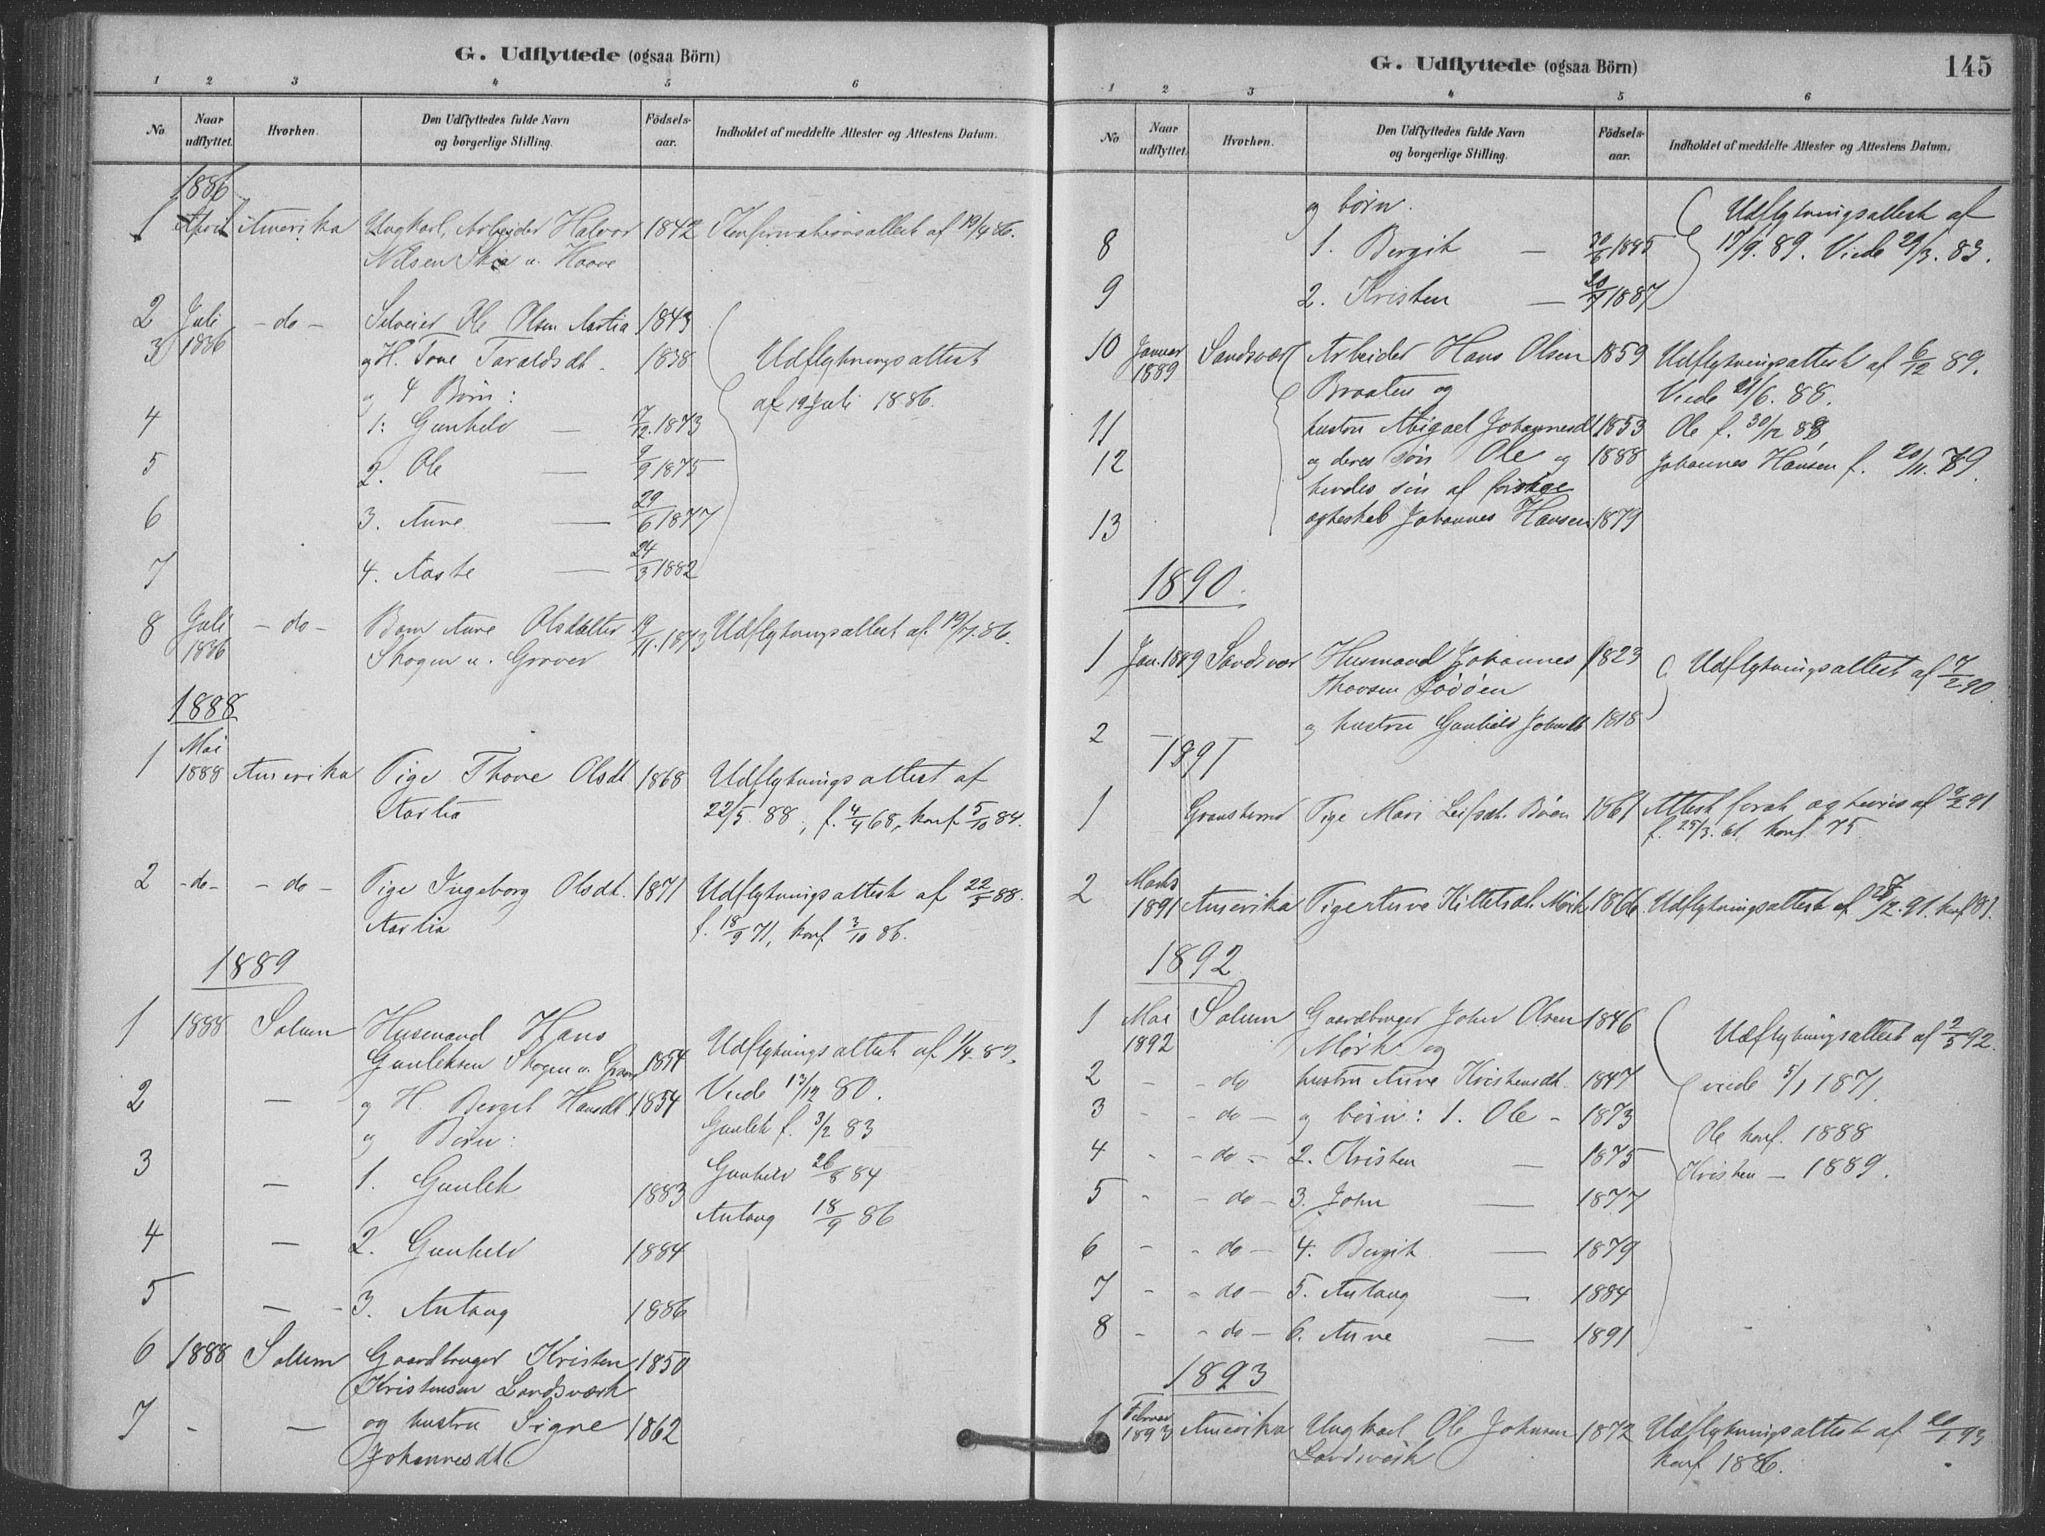 G. Udflyttede (ogsaa Börn)
1 2 3 4 5 6
No. Naar udflyttet. Hvorhen. Den Udflyttedes fulde Navn og borgerlige Stilling. Födsels-aar. Indholdet af meddelte Attester og Attestens Datum.
1886
1 April Amerika Ungkarl, Arbeider Halvor 1842 Konfirmationsattest af 19/4 86.
Nilsen
2 Juli 1886 - do - Selveier Ole Olsen Aaslia 1843
3 og H. Tone Taraldsdt. 1838 Udflytningsattest
og 4 Börn: af 19 Juli 1886.
4 1. Gunhild — 7/12 1873
5 2. Ole — 9/9 1875
6 3. Anne — 29/6 1877
7 4. Aaste — 24/3 1882
8 Juli 1886 - do - Anne Olsdatter 1843 Udflytningsattest af 19/7. 86.
Skogen u. Graver
1888
1 Mai 1888 Amerika Pige Thone Olsdt 1868 Udflytningsattest af
Aaslia 22/5. 88, f. 4/4 68, konf 5/10 84.
2 - do - - do - Pige Ingeborg Olsdt. 1871 Udflytningsattest af 22/5 88.
Aaslia f. 18/9 71, konf 3/10 86.
1889
1 1888 Solum Husmand Hans
Gunleksen Skogen u. Graver 1854 Udflytningsattest af 1/4. 89.
2 — og H. Bergit Hansdt. 1854 Viede 13/12 80.
og Börn: Gunlek f. 3/2 83
3 — 1. Gunlek 1883 Gunhild 26/8 84
4 — 2. Gunhild 1884 Antang 18/9 86
5 — 3. Antang 1886
6 1888 Solum Gaardbruger Kristen 1850
Kristensen Landsværk
7 - — og hustru Signe 1862
Johannesdt.
G. Udflyttede (ogsaa Börn) 145
1 2 3 4 5 6
No Naar udflyttet. Hvorhen. Den Udflyttedes fulde Navn og borgerlige Stilling. Födsels-aar. Indholdet af meddelte Attester og Attestens Datum.
og börn. Udflytningsattest af
8 1. Bergit — 1885 17/9. 89. Viede 29/3. 83.
9 2. Kristen — 1887
10 Januar 1889 Sandsvær Arbeider Hans Olsen 1859 Udflytningsattest af 6/12 89.
Braaten og Viede 21/6. 88.
11 hustru Abigael Johannesdt 1853 Ole f. 30/12 88,
12 og deres sön Ole og 1888 Johannes Hansen f. 20/11. 79.
hendes sön af forrige
13 ægteskab Johannes Hansen 1879
1890.
1 Jan. 1889 Sandsvær Husmand Johannes 1823 Udflytningsattest af 7/2 90
Thorsen
2 og hustru Gunhild Johnsdt 1818
1891
1 Gransherred Pige Mari Leifsdt. Böen 1861 Attest forat ægtevies af 9/2 91
f. 25/3. 61, konf. 75.
2 Marts 1891 Amerika Pige Anne Kittelsdt. Mörk 1866 Udflytningsattest af 28/2. 91. konf 81.
1892
1 Mai 1892 Solum Gaardbruger John Olsen 1846 Udflytningsattest af 2/5 92.
Mörk og
2 - - do hustru Anne Kristensdt. 1847 viede 5/1 1871.
3 - - do - og börn: 1. Ole - 1873
Ole konf. 1888
4 - - do - 2. Kristen — 1875 Kristen — 1889.
5 - - do - 3. John — 1877
6 - - do - 4. Bergit — 1879
7 - - do - 5. Antang — 1884
8 - - do - 6. Anne — 1891
1893
1 Februar 1893 Amerika Ungkarl Ole Johnsen 1872 Udflytningsattest af 20/1 93
Landsværk konf 1886.